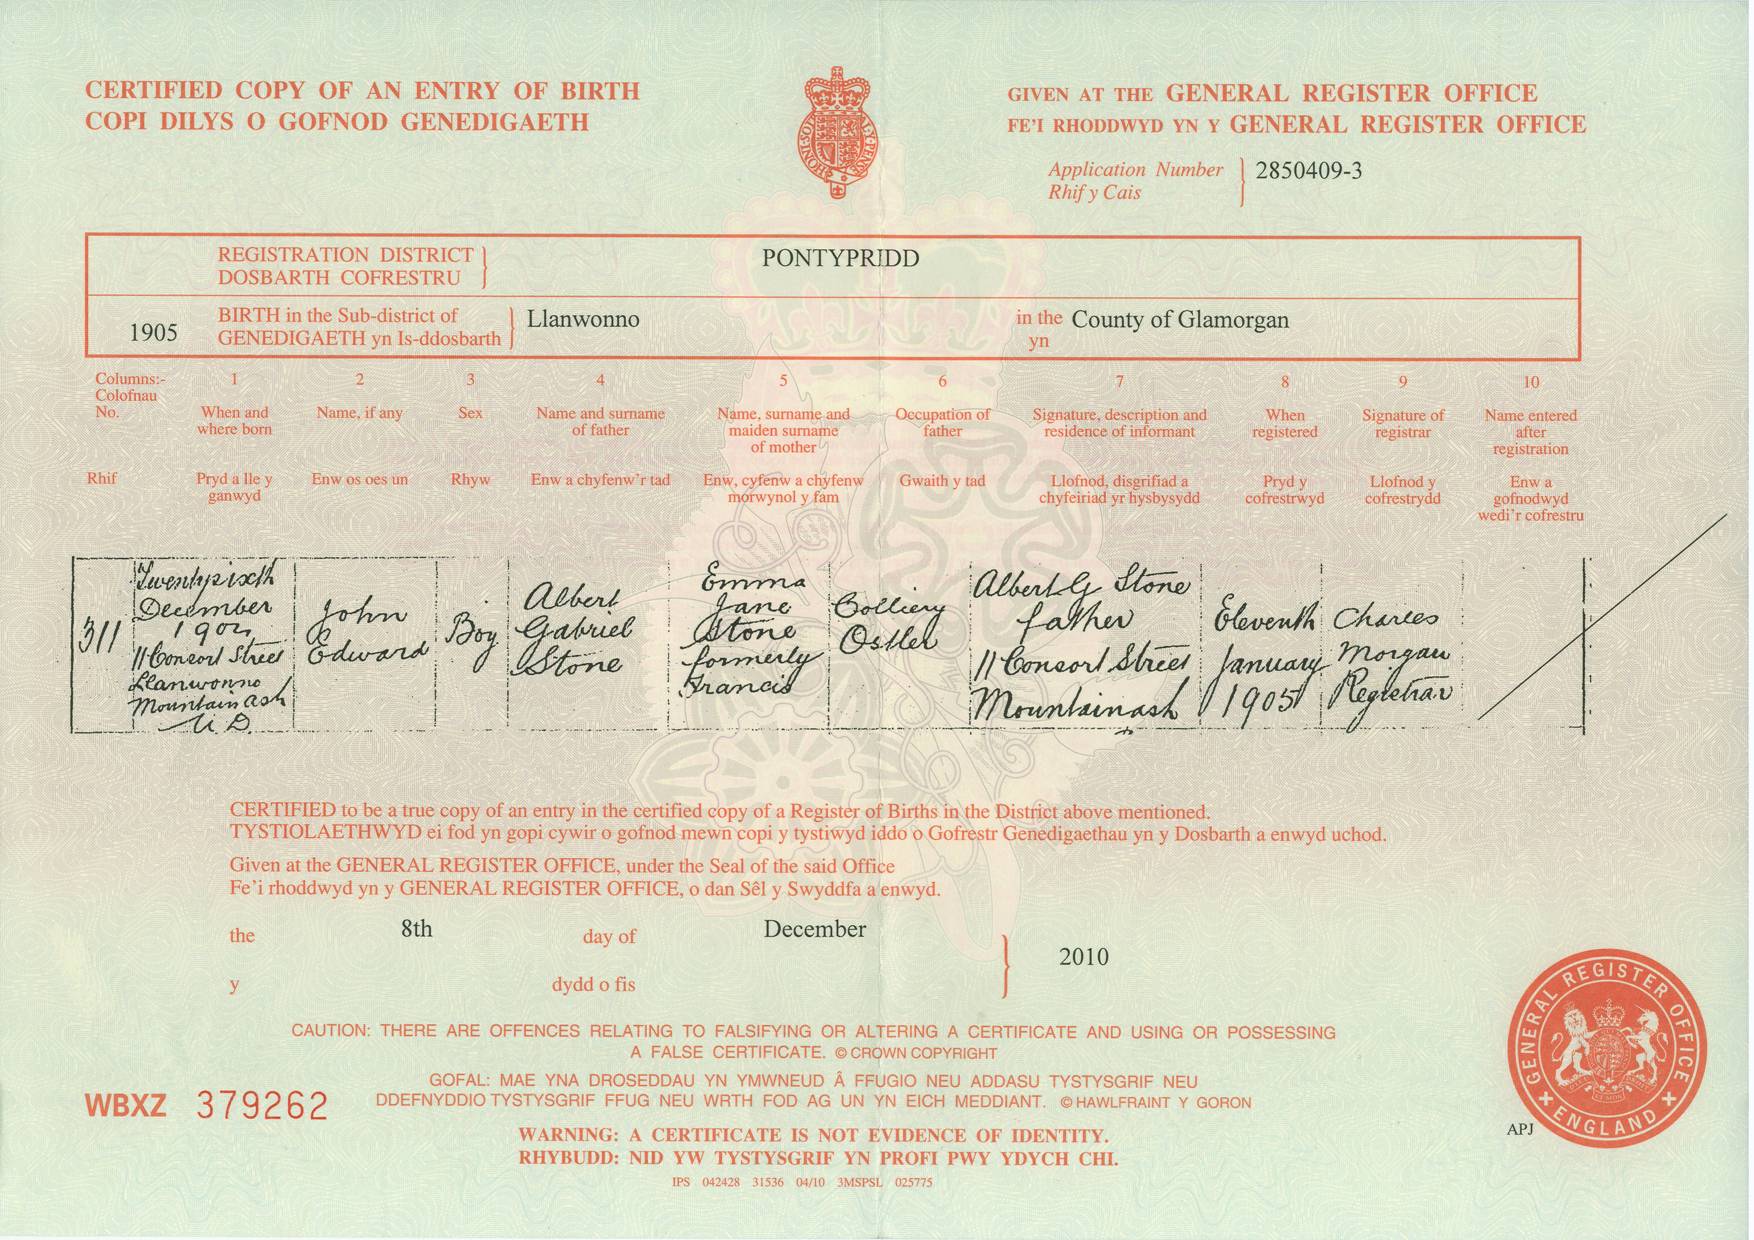 CERTIFIED COPY OF AN ENTRY OF BIRTH
COPI DILYS O GOFNOD GENEDIGAETH
GIVEN AT THE GENERAL REGISTER OFFICE
FE'I RHODDWYD YN Y GENERAL REGISTER OFFICE
Application Number
Rhif y Cais
2850409-3
REGISTRATION DISTRICT
DOSBARTH COFRESTRU
PONTYPRIDD
1905
BIRTH in the Sub-district of
GENEDIGAETH yn Is-ddosbarth
Llanwonno
in the
yn
County of Glamorgan
Columns:-
Colofnau
No.
Rhif
1
When and
where born
Pryd a lle y
ganwyd
2
Name, if any
Enw os oes un
3
Sex
Rhyw
4
Name and surname
of father
Enw a chyfenw'r tad
5
Name, surname and
maiden surname
of mother
Enw, cyfenw a chyfenw
morwynol y fam
6
Occupation of
father
Gwaith y tad
7
Signature, description and
residence of informant
Llofnod, disgrifiad a
chyfeiriad yr hysbysydd
8
When
registered
Pryd y
cofrestrwyd
9
Signature of
registrar
Llofnod y
cofrestrydd
10
Name entered
after
registration
Enw a
gofnodwyd
wedi'r cofrestru
311
Twentysixth
December
1904
11 Consort Street
Llanwonno
Mountain ash
U. D.
John
Edward
Boy
Albert
Gabriel
Stone
Emma
Jane
Stone
formerly
Francis
Colliery
Ostler
Albert G Stone
father
11 Consort Street
Mountainash
Eleventh
January
1905
Charles
Morgan
Registrar
CERTIFIED to be a true copy of an entry in the certified copy of a Register of Births in the District above mentioned.
TYSTIOLAETHWYD ei fod yn gopi cywir o gofnod mewn copi y tystiwyd iddo o Gofrestr Genedigaethau yn y Dosbarth a enwyd uchod.
Given at the GENERAL REGISTER OFFICE, under the Seal of the said Office
Fe'i rhoddwyd yn y GENERAL REGISTER OFFICE, o dan Sêl y Swyddfa a enwyd.
the 8th day of December 2010
y dydd o fis
CAUTION: THERE ARE OFFENCES RELATING TO FALSIFYING OR ALTERING A CERTIFICATE AND USING OR POSSESSING
A FALSE CERTIFICATE. © CROWN COPYRIGHT
GOFAL: MAE YNA DROSEDDAU YN YMWNEUD Â FFUGIO NEU ADDASU TYSTYSGRIF NEU
DDEFNYDDIO TYSTYSGRIF FFUG NEU WRTH FOD AG UN YN EICH MEDDIANT. © HAWLFRAINT Y GORON
WBXZ 379262
WARNING: A CERTIFICATE IS NOT EVIDENCE OF IDENTITY.
RHYBUDD: NID YW TYSTYSGRIF YN PROFI PWY YDYCH CHI.
IPS 042428 31536 04/10 3MSPSL 025775
GENERAL REGISTER OFFICE
ENGLAND
APJ